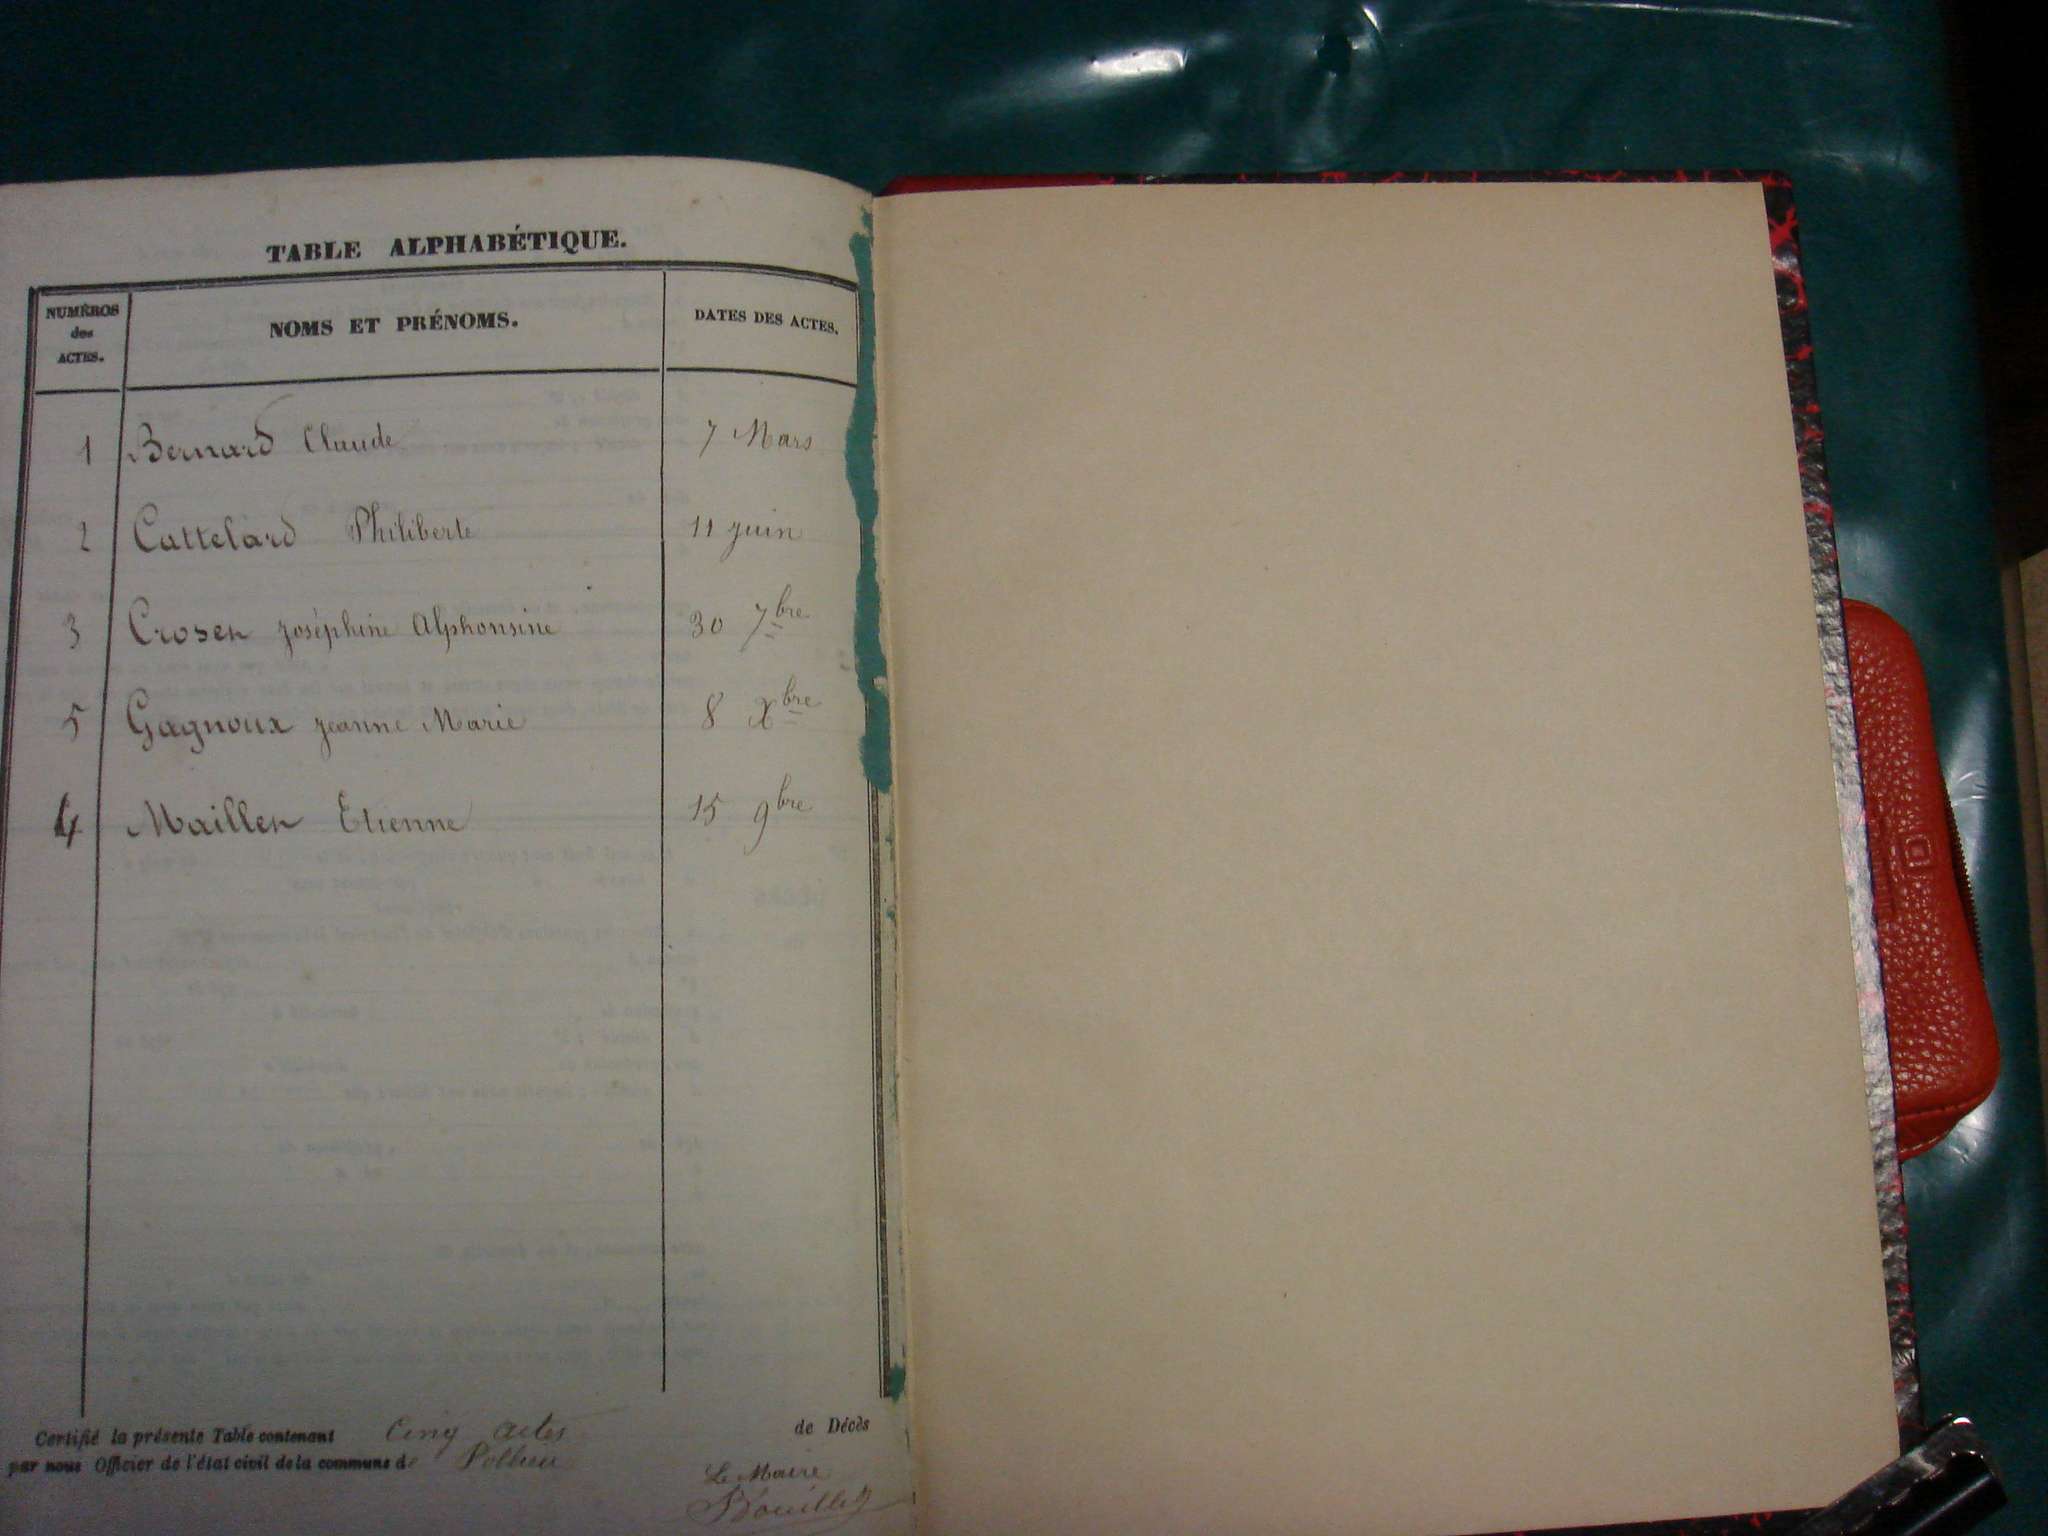 TABLE ALPHABÉTIQUE.
NUMÉROS des ACTES. NOMS ET PRÉNOMS. DATES DES ACTES.
1 Bernard Claude 7 Mars
2 Cattelard Philiberte 11 juin
3 Croser Joséphine Alphonsine 30 7bre
5 Gagnoux Jeanne Marie 8 Xbre
4 Mailler Etienne 15 9bre
Certifié la présente Table contenant Cinq actes de Décès
par nous Officier de l'état civil de la commune de Pollieu
Le Maire